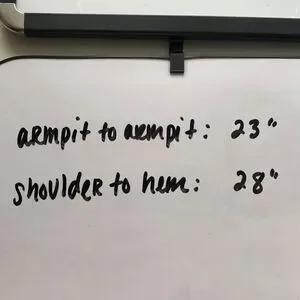 armpit to armpit: 23"
shoulder to hem: 28"